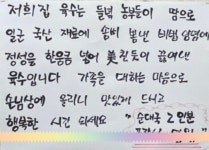 저희집 육수는 들녘 농부들이 땀으로
일군 국산 재료에 손비 봄낸 비법 양념에
정성을 한웅큼 넣어 美친듯이 끓여낸
육수입니다 가족을 대하는 마음으로
손님상에 올리니 맛있게 드시고
행복한 시간 되세요
순대국 2인분